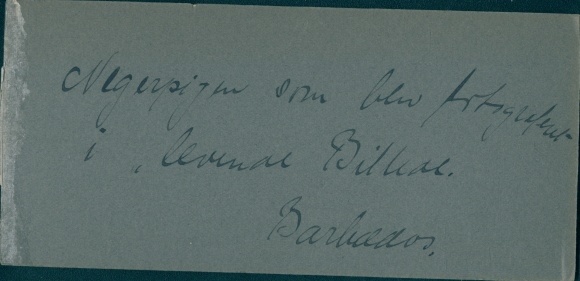 Negerpigen som blev fotograferet
i „levende Billede.
Barbados.